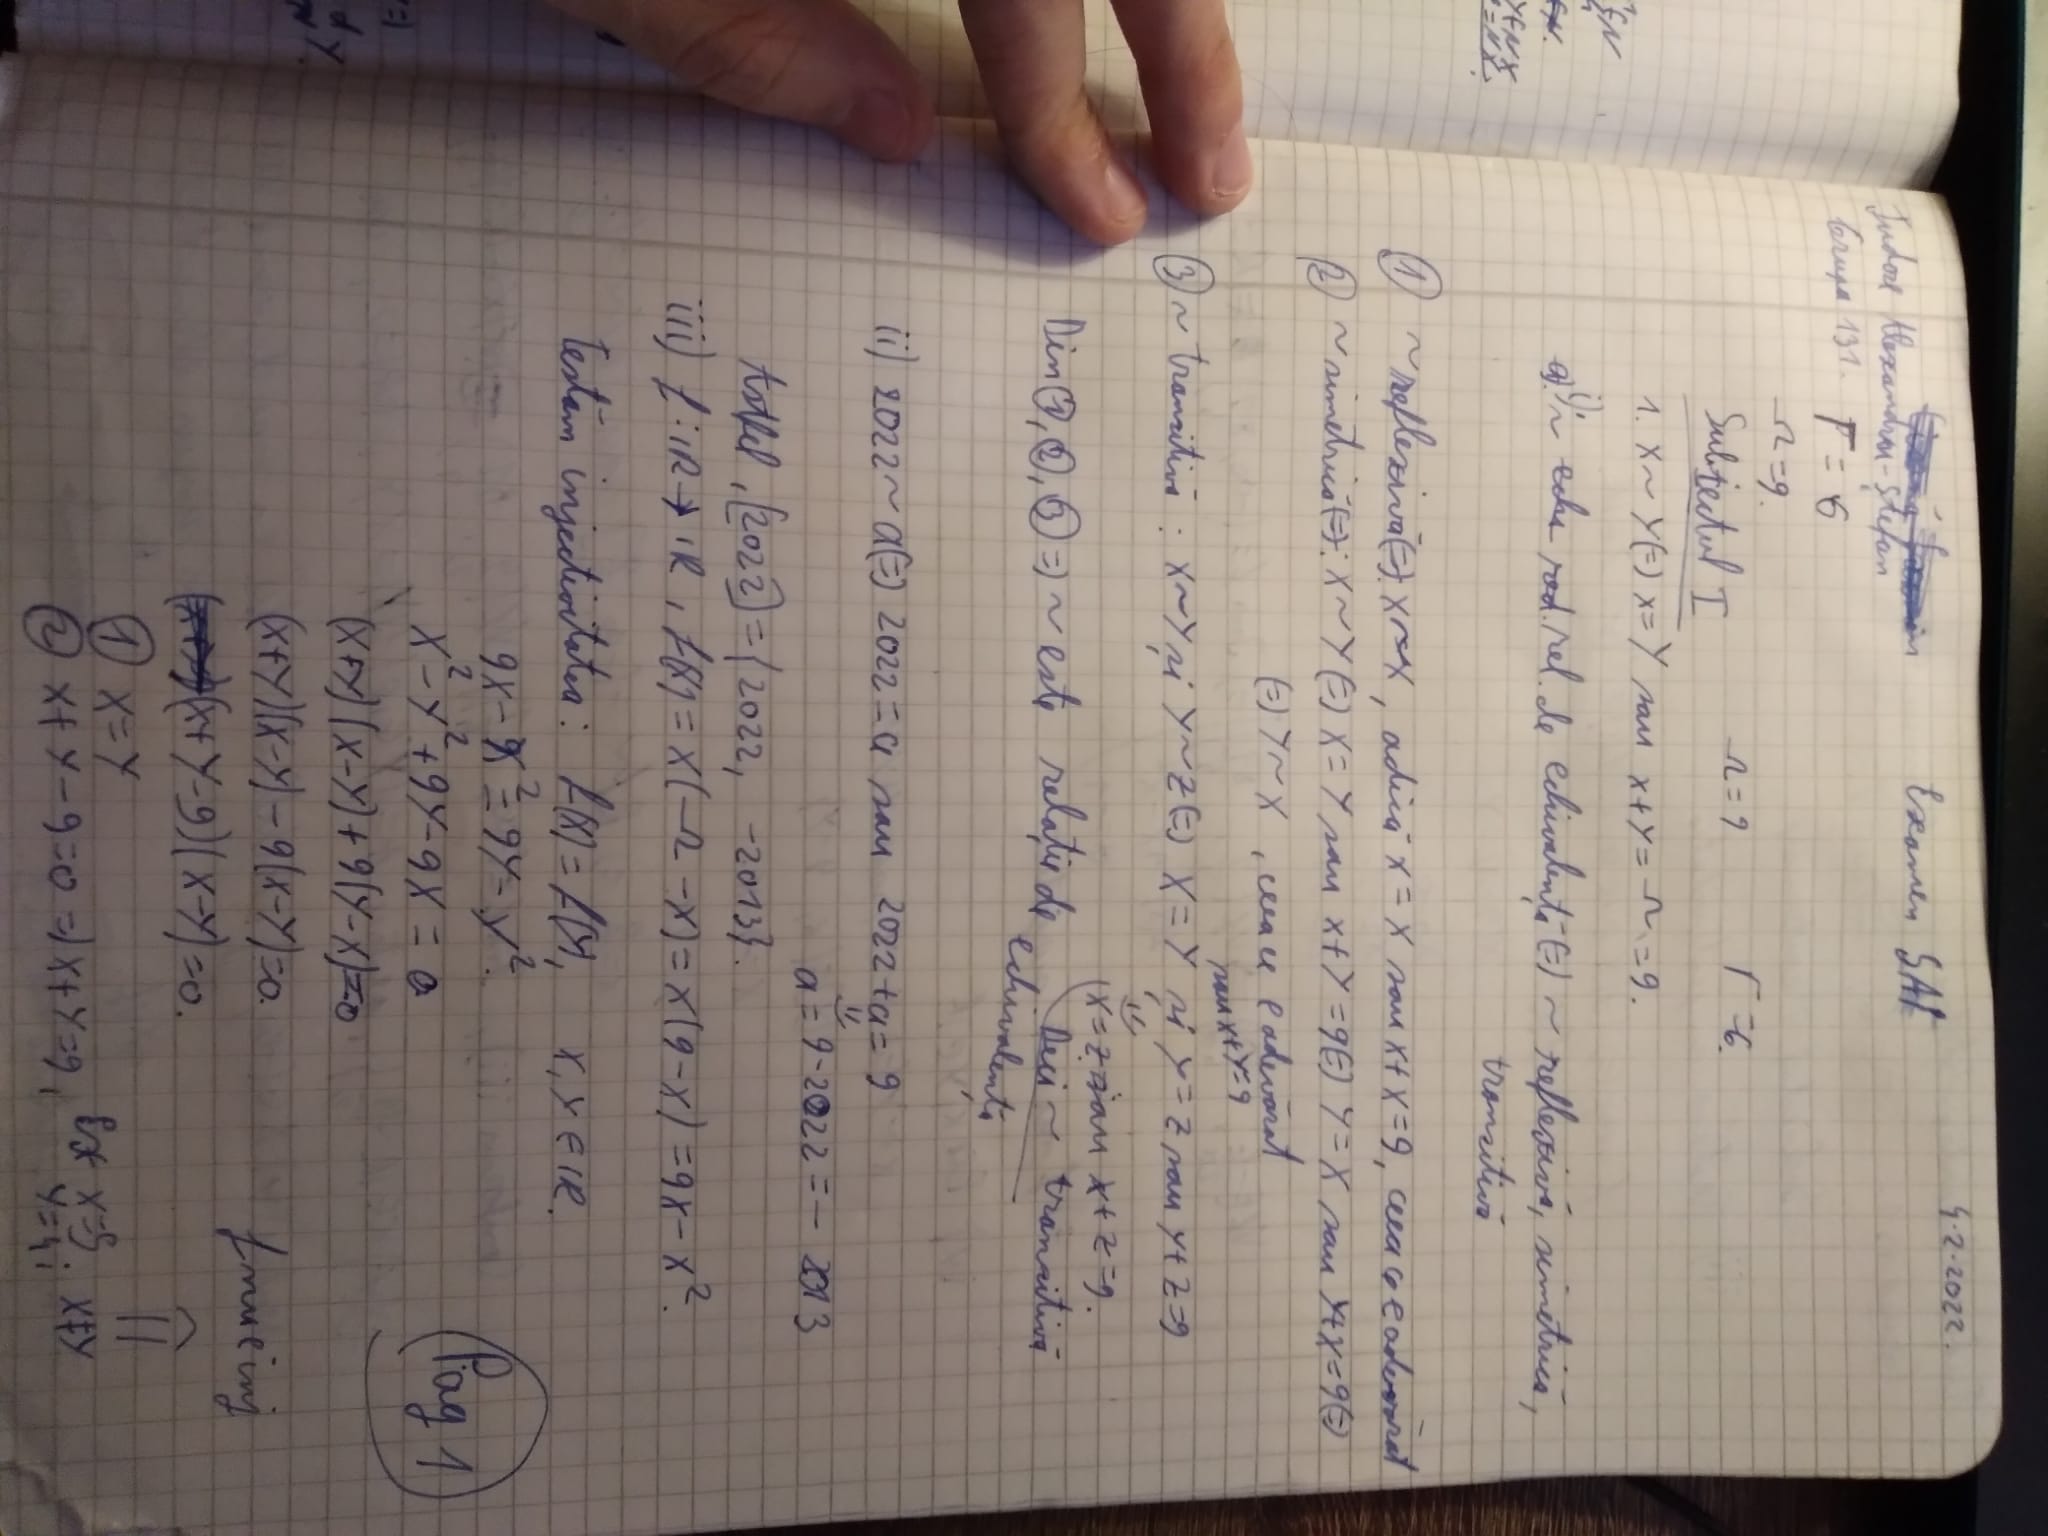 4.2.2022.
Examen SAI
Tudose Alexandru-Ștefan
Grupa 131.
Γ = 6
Ω = 9.
Subiectul I Ω = 9 Γ = 6.
1. X ~ Y (=) X = Y sau X + Y = Ω = 9.
a) i) ~ rel. de echivalență (=) ~ reflexivă, simetrică,
tranzitivă
① ~ reflexivă (=): X ~ X, adică X = X sau X + X = 9, ceea ce e adevărat
② ~ simetrică (=): X ~ Y (=) X = Y sau X + Y = 9 (=) Y = X sau Y + X = 9 (=)
(=) Y ~ X, ceea ce e adevărat
sau X + Y = 9
③ ~ tranzitivă : X ~ Y și Y ~ Z (=) X = Y și Y = Z sau Y + Z = 9
X = Z sau X + Z = 9.
Deci ~ tranzitivă
Din ①, ②, ③ =) ~ este relație de
echivalență
ii) 2022 ~ a (=) 2022 = a sau 2022 + a = 9
a = 9 - 2022 = - 2013
Astfel, [2022] = {2022, -2013}.
iii) f : IR → IR, f(X) = X(Ω - X) = X(9 - X) = 9X - X².
Testăm injectivitatea : f(X) = f(Y), X, Y ∈ IR.
9X - X² = 9Y - Y².
X² - Y² + 9Y - 9X = 0
(X+Y)(X-Y) + 9(Y-X) = 0
(X+Y)(X-Y) - 9(X-Y) = 0.
(X+Y-9)(X-Y) = 0.
① X = Y
② X + Y - 9 = 0 =) X + Y = 9, Ex X = 5 Y = 4; X ≠ Y
f nu e inj
Pag 1